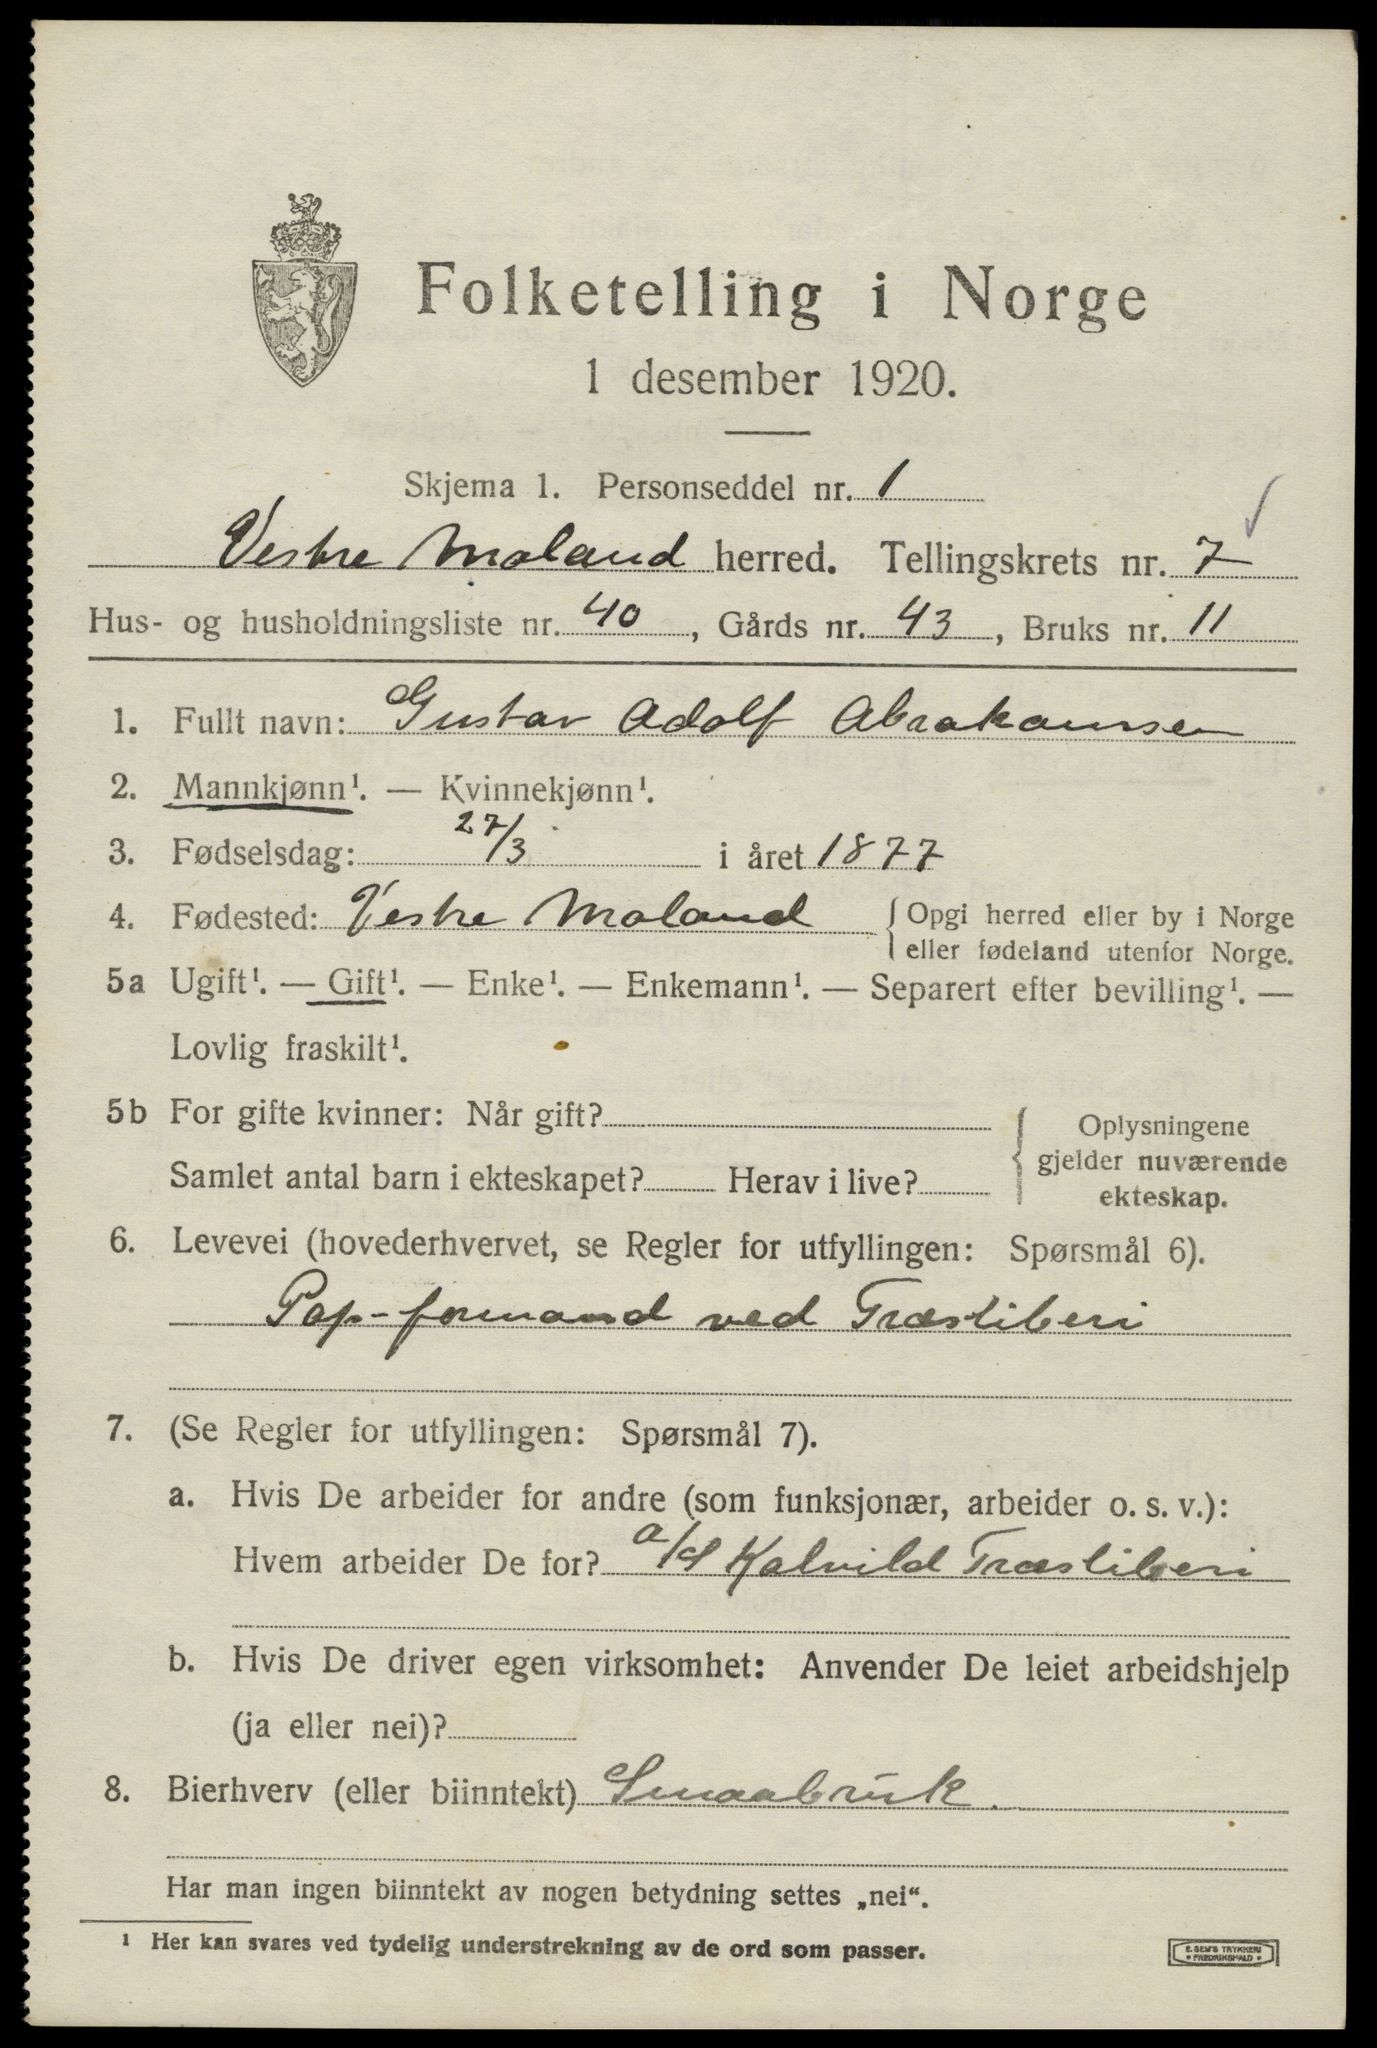 Folketelling i Norge
1 desember 1920.
Skjema 1. Personseddel nr. 1
Vestre Moland herred. Tellingskrets nr. 7
Hus- og husholdningsliste nr. 40, Gårds nr. 43, Bruks nr. 11
1. Fullt navn: Gustav Adolf Abrahamsen
2. Mannkjønn¹. — Kvinnekjønn¹.
3. Fødselsdag: 27/3 i året 1877
4. Fødested: Vestre Moland { Opgi herred eller by i Norge
eller fødeland utenfor Norge.
5a Ugift¹. — Gift¹. — Enke¹. — Enkemann¹. — Separert efter bevilling¹. —
Lovlig fraskilt¹.
5b For gifte kvinner: Når gift?
Samlet antal barn i ekteskapet? Herav i live?
{ Oplysningene
gjelder nuværende
ekteskap.
6. Levevei (hovederhvervet, se Regler for utfyllingen: Spørsmål 6).
Pap-formand ved Træsliberi
7. (Se Regler for utfyllingen: Spørsmål 7).
a. Hvis De arbeider for andre (som funksjonær, arbeider o. s. v.):
Hvem arbeider De for? a/S Kalvild Træsliberi
b. Hvis De driver egen virksomhet: Anvender De leiet arbeidshjelp
(ja eller nei)?
8. Bierhverv (eller biinntekt) Smaabruk.
Har man ingen biinntekt av nogen betydning settes „nei“.
¹ Her kan svares ved tydelig understrekning av de ord som passer.
E. SEM'S TRYKKERI
• FREDRIKSHALD •